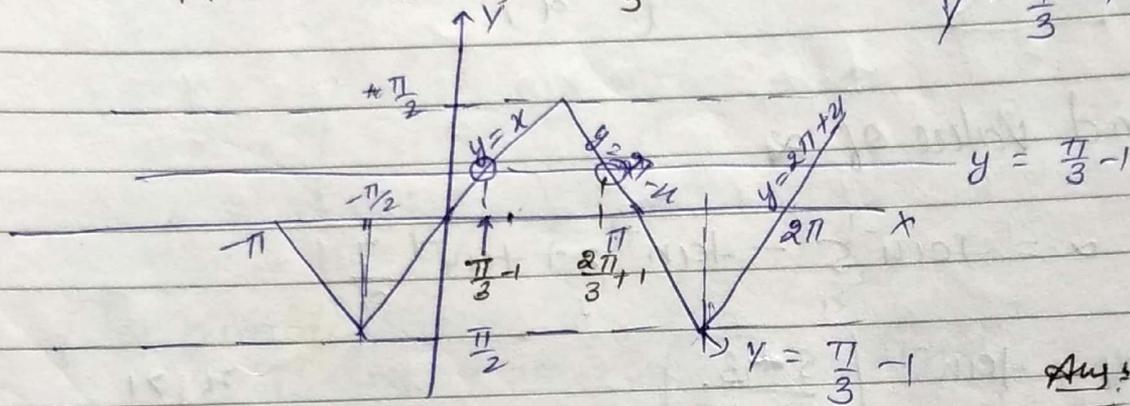 Y
y π/3
π/2
y = x
y = π - x
y = 2π + x
y = π/3 - 1
-π/2
-π
π/3 - 1
2π/3 + 1
π
2π
X
π/2
y = π/3 - 1
Ans: